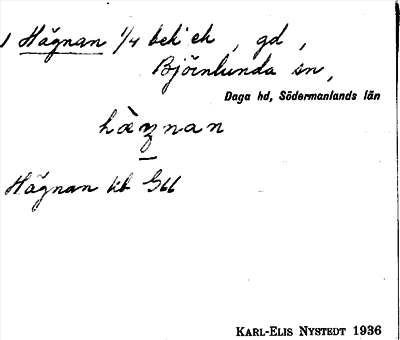 1 Hägnan 1/4 bek ek, gd,
Björnlunda sn,
Daga hd, Södermanlands län
hàŋnan
Hägnan
KARL-ELIS NYSTEDT 1936